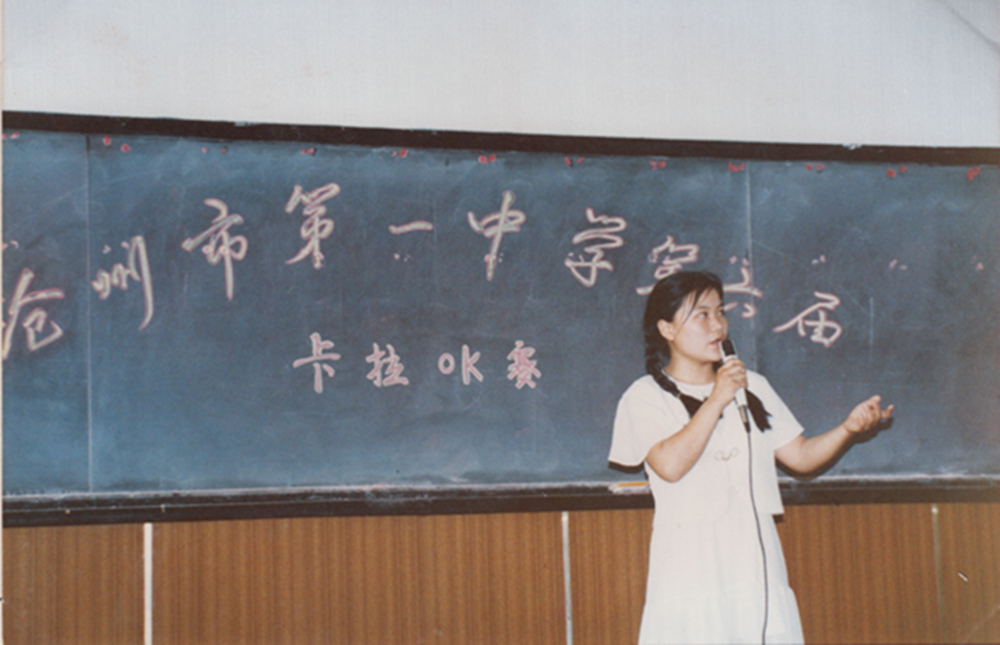 沧州市第一中学第六届
卡拉OK赛